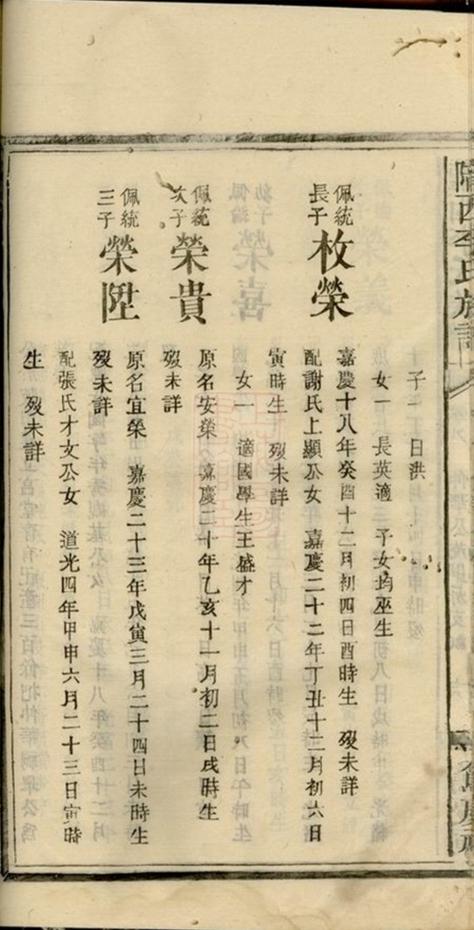 隴西李氏族譜
子一　日洪
女一　長英適　子女均巫生
佩統長子　枚榮
嘉慶十八年癸酉十二月初四日酉時生　歿未詳
配謝氏上顯公女　嘉慶二十二年丁丑十二月初六日
寅時生　歿未詳
女一　適國學生王盛才
佩統次子　榮貴
原名安榮　嘉慶二十年乙亥十一月初二日戌時生
歿未詳
佩統三子　榮陞
原名宜榮　嘉慶二十三年戊寅三月二十四日未時生
歿未詳
配張氏才文公女　道光四年甲申六月二十三日寅時
生　歿未詳